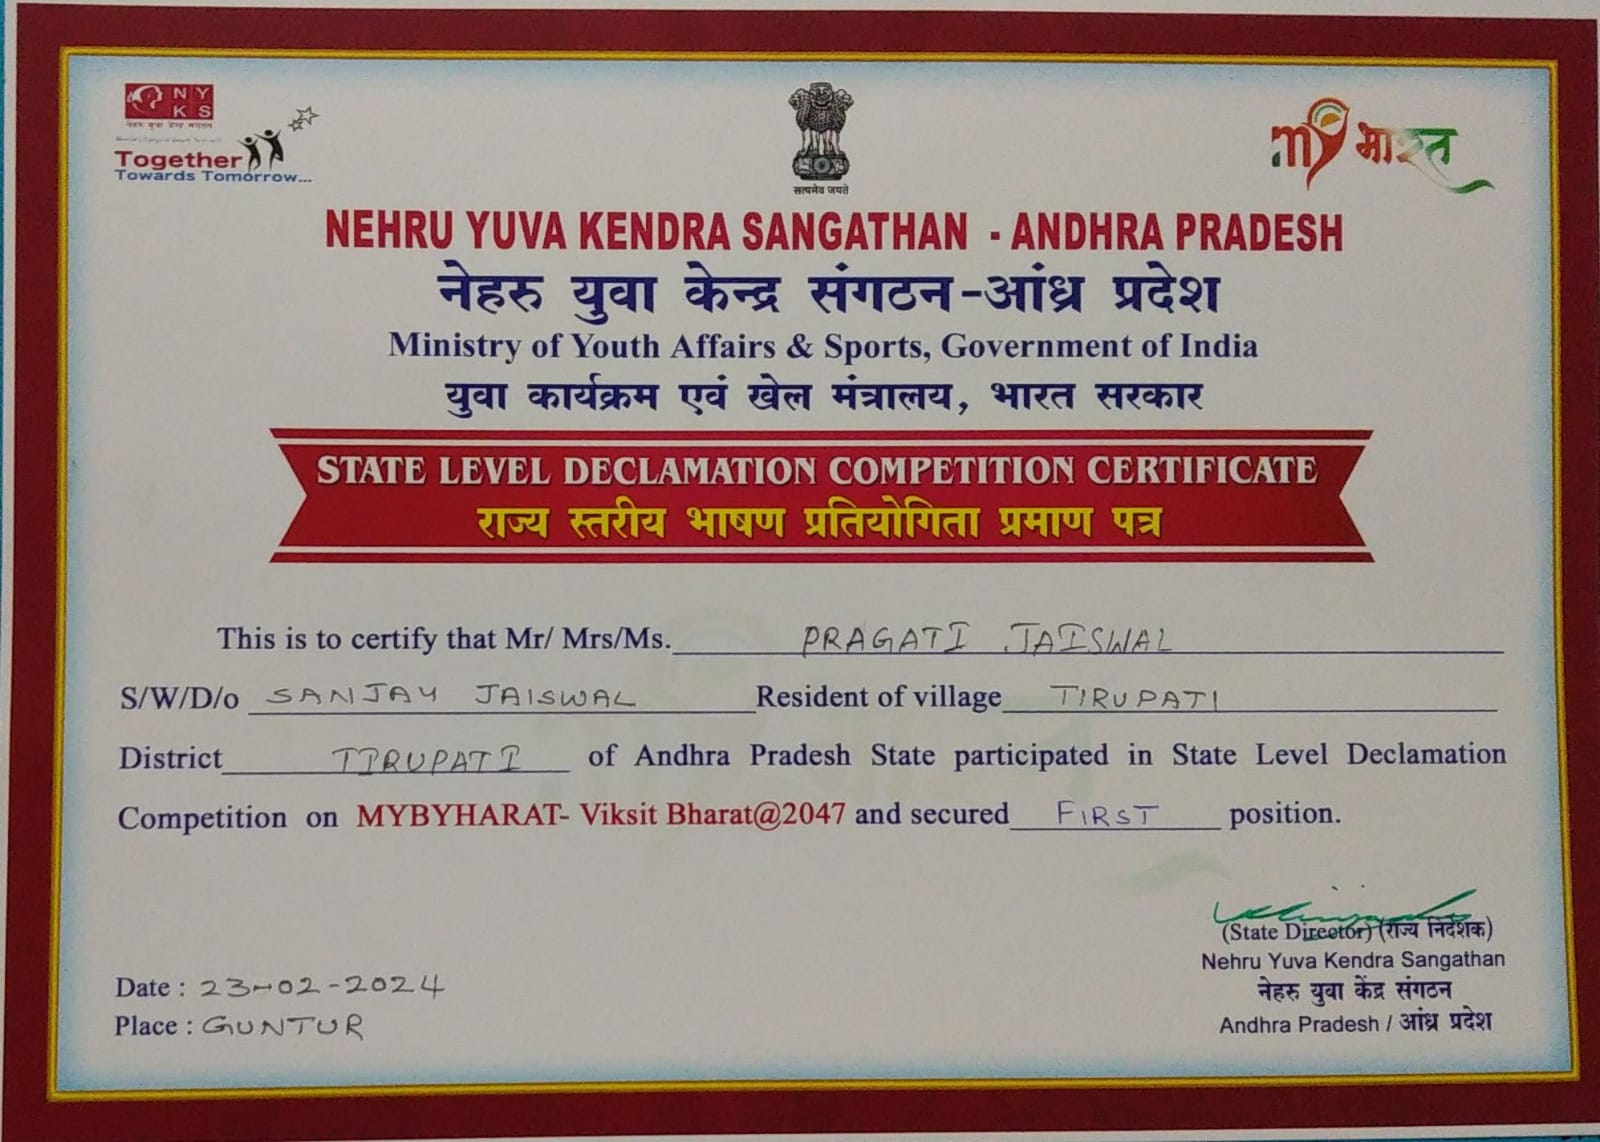 NY
KS
नेहरू युवा केन्द्र संगठन
Together
Towards Tomorrow...
सत्यमेव जयते
my भारत
NEHRU YUVA KENDRA SANGATHAN - ANDHRA PRADESH
नेहरु युवा केन्द्र संगठन-आंध्र प्रदेश
Ministry of Youth Affairs & Sports, Government of India
युवा कार्यक्रम एवं खेल मंत्रालय, भारत सरकार
STATE LEVEL DECLAMATION COMPETITION CERTIFICATE
राज्य स्तरीय भाषण प्रतियोगिता प्रमाण पत्र
This is to certify that Mr/ Mrs/Ms. PRAGATI JAISWAL
S/W/D/o SANJAY JAISWAL Resident of village TIRUPATI
District TIRUPATI of Andhra Pradesh State participated in State Level Declamation
Competition on MYBYHARAT- Viksit Bharat@2047 and secured FIRST position.
(State Director) (राज्य निर्देशक)
Nehru Yuva Kendra Sangathan
नेहरु युवा केंद्र संगठन
Andhra Pradesh / आंध्र प्रदेश
Date : 23-02-2024
Place : GUNTUR